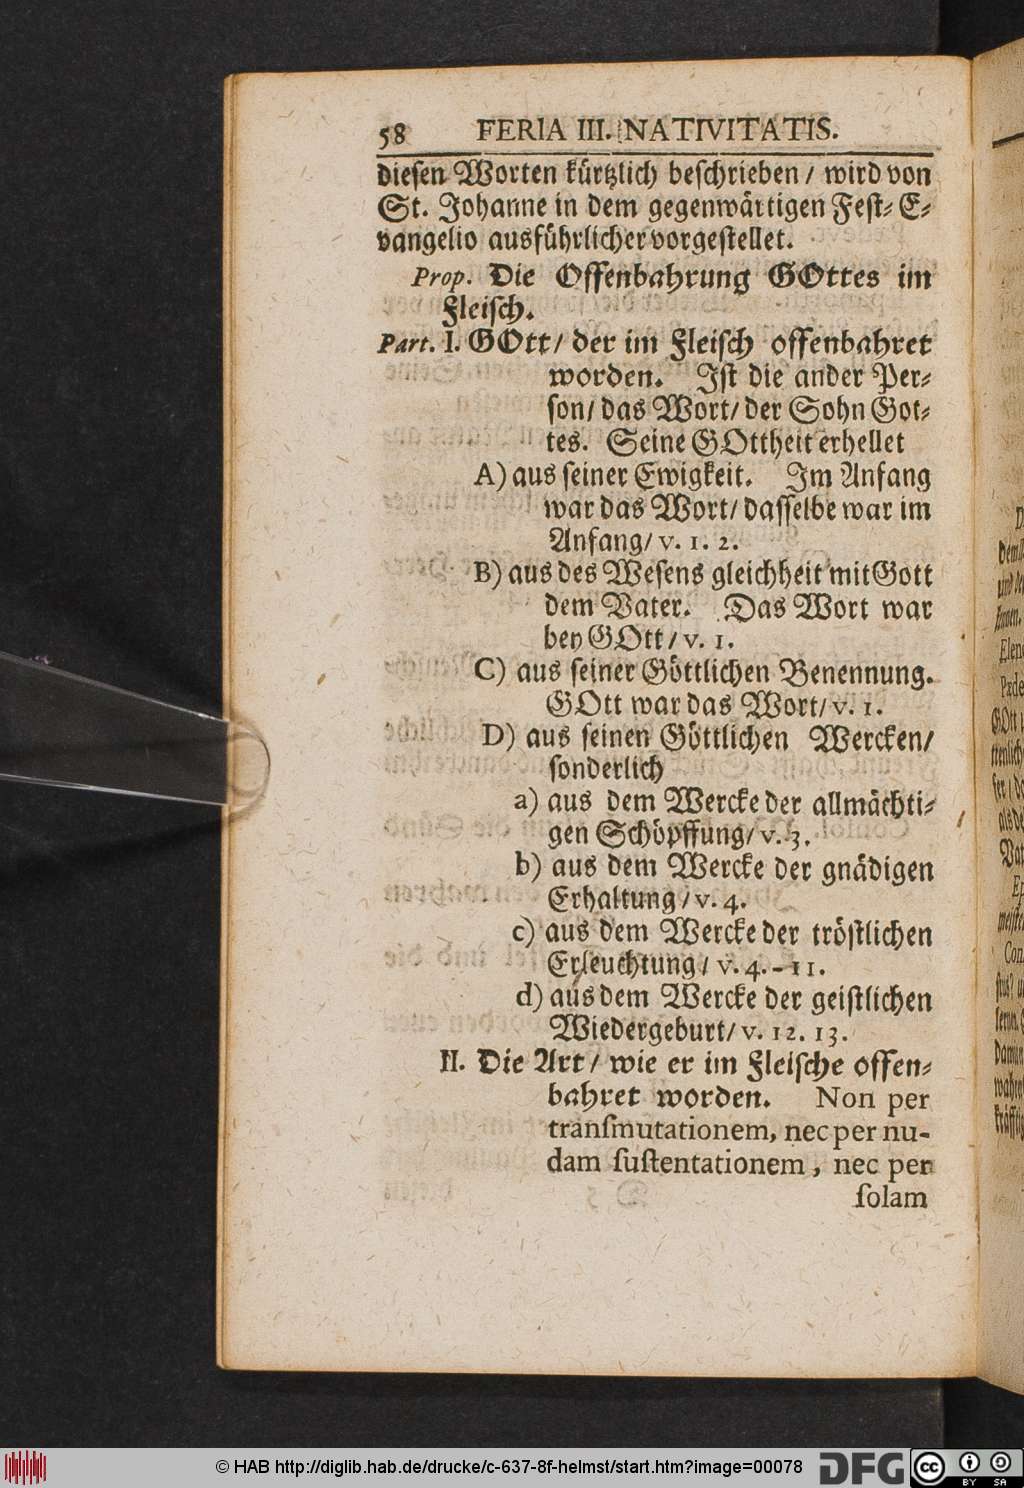 58 FERIA III. NATIVITATIS.
diesen Worten kürtzlich beschrieben / wird von
St. Johanne in dem gegenwärtigen Fest-E-
vangelio ausführlicher vorgestellet.
Prop. Die Offenbahrung GOttes im
Fleisch.
Part. I. GOtt / der im Fleisch offenbahret
worden. Ist die ander Per-
son / das Wort / der Sohn Got-
tes. Seine GOttheit erhellet
A) aus seiner Ewigkeit. Im Anfang
war das Wort / dasselbe war im
Anfang / v. 1. 2.
B) aus des Wesens gleichheit mit Gott
dem Vater. Das Wort war
bey GOtt / v. 1.
C) aus seiner Göttlichen Benennung.
GOtt war das Wort / v. 1.
D) aus seinen Göttlichen Wercken /
sonderlich
a) aus dem Wercke der allmächti-
gen Schöpffung / v. 3.
b) aus dem Wercke der gnädigen
Erhaltung / v. 4.
c) aus dem Wercke der tröstlichen
Erleuchtung / v. 4. - 11.
d) aus dem Wercke der geistlichen
Wiedergeburt / v. 12. 13.
II. Die Art / wie er im Fleische offen-
bahret worden. Non per
transmutationem, nec per nu-
dam sustentationem, nec per
solam
© HAB http://diglib.hab.de/drucke/c-637-8f-helmst/start.htm?image=00078
DFG
cc BY SA